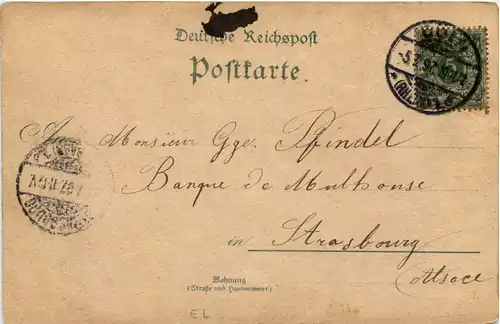 Deutsche Reichspost
Postkarte.
A Monsieur Gge. Spindel
Banque de Mulhouse
in Strasbourg
Alsace
Wohnung
(Straße und Hausnummer)
EL